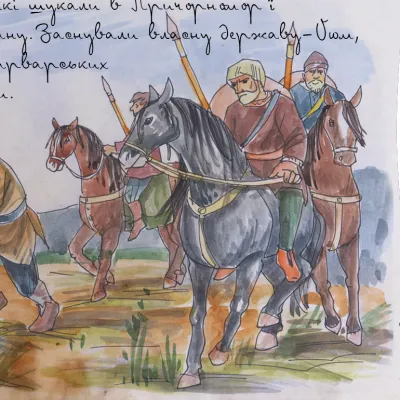 кі шукали в Причорномор'ї
ну. Заснували власну державу-Ойм,
рварських